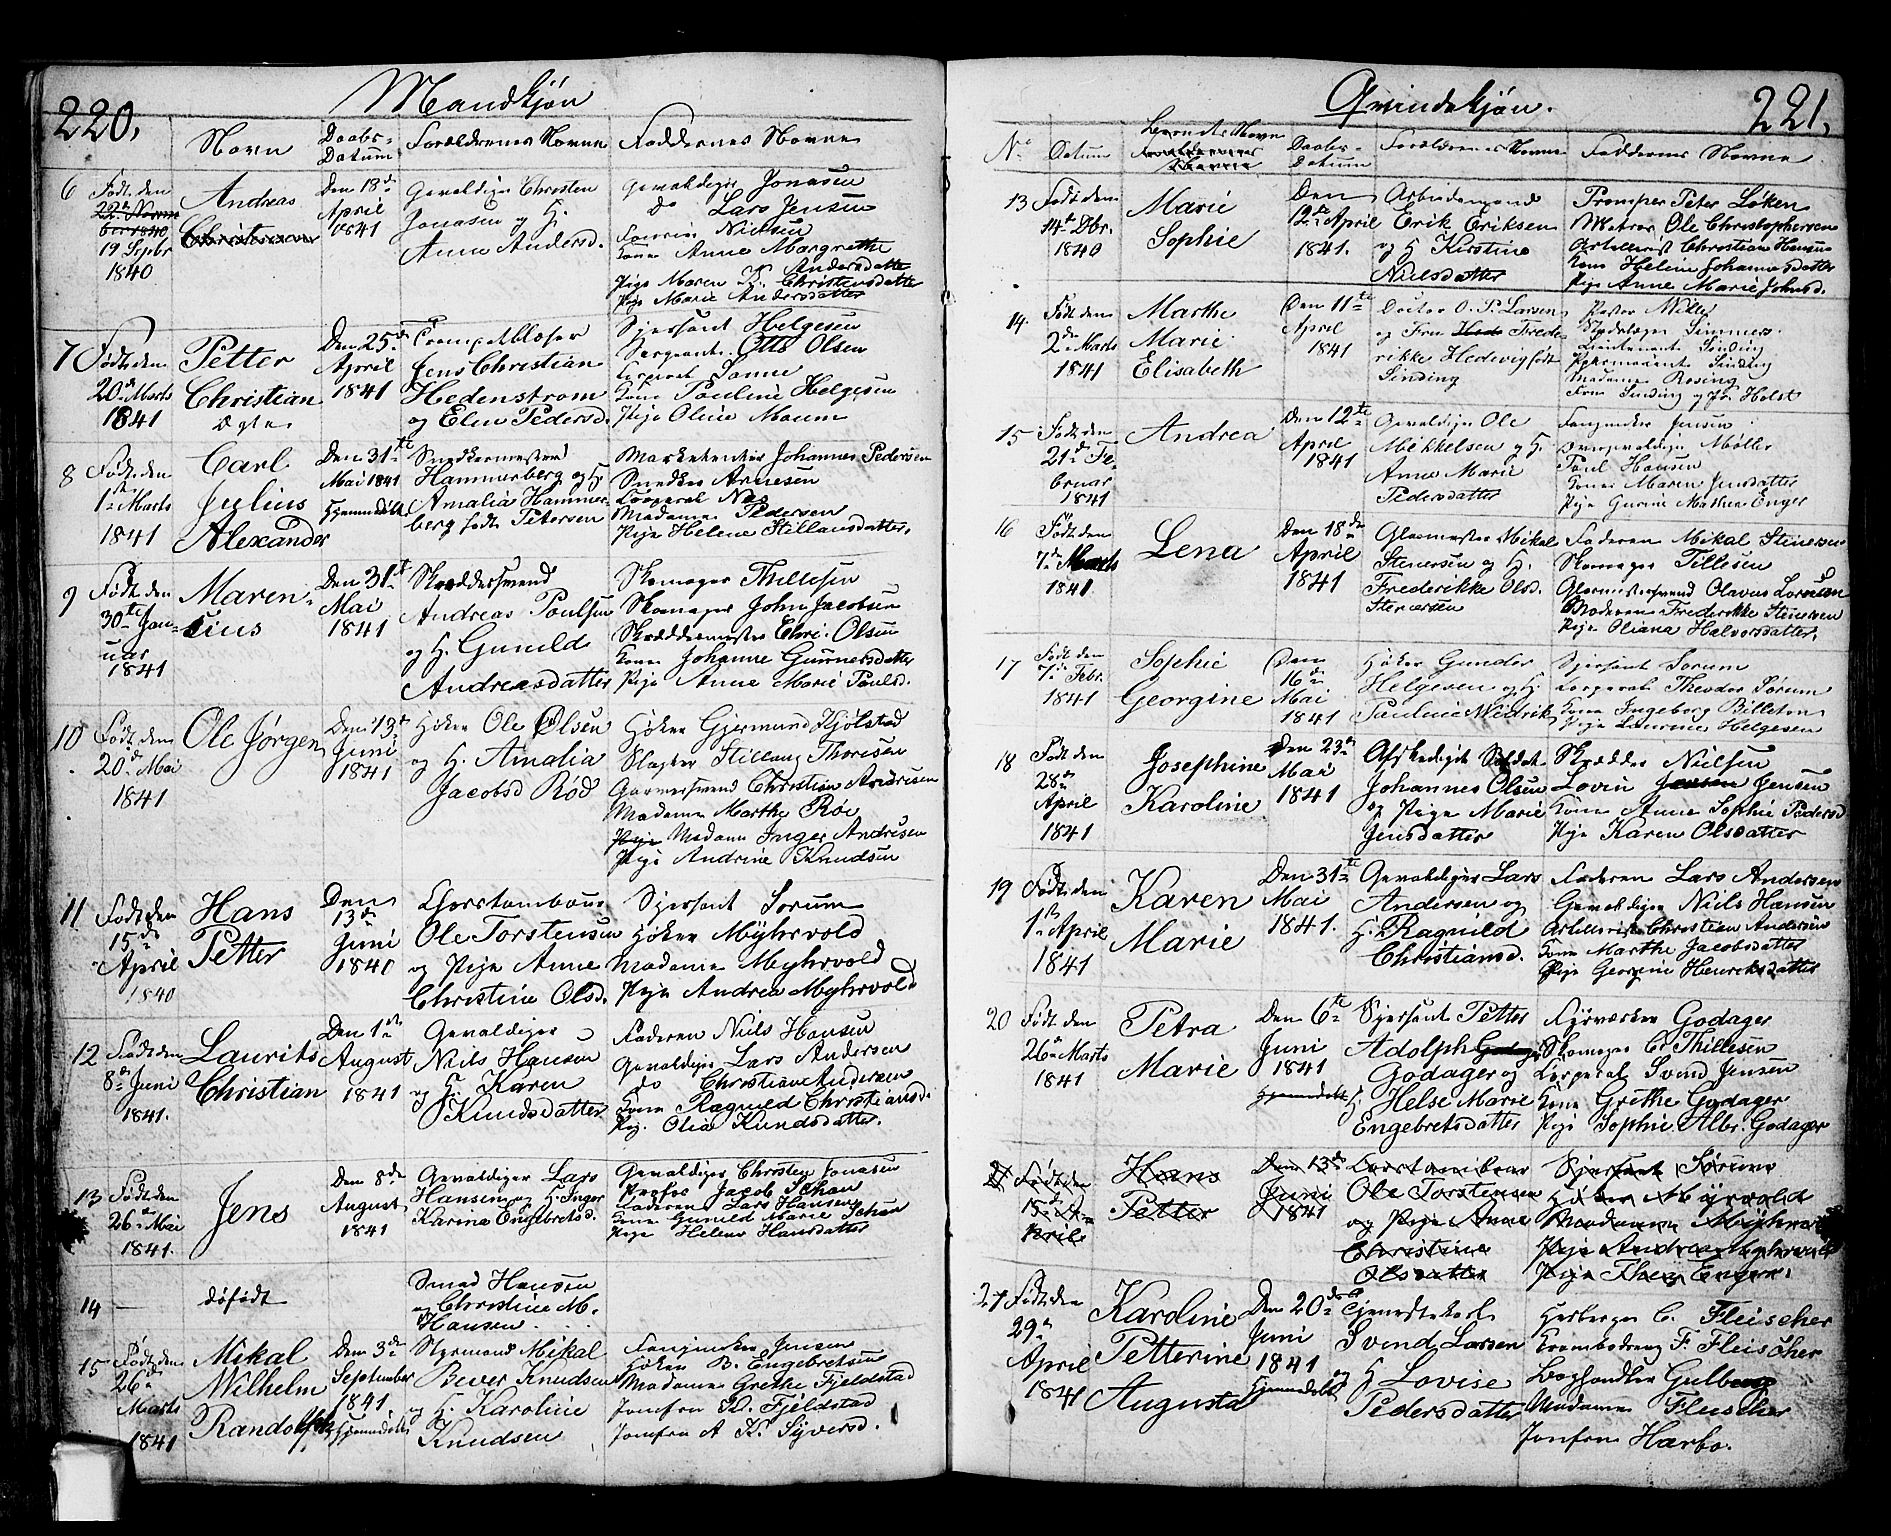 220.
Mandkjøn
Navn
Daabs-
Datum
Forældrenes Navne
Faddernes Navne
6
Født den
22de Novem
ber 1840
19 Septbr
1840
Andreas
Christian
Den 18de
April
1841
Gevaldiger Christen
Jonasen og H.
Anne Andersd.
Gevaldiger Jonasen
do Lars Jensen
Nielsen
Kone Anne Margrethe
Andersdatter
Pige Maren K. Christensdatter
Pige Marie Andersdatter
7
Født den
20de Marts
1841
Petter
Christian
Ægte
Den 25de
April
1841
Trompetblæser
Jens Christian
Hedenstrom
og Elen Pedersd.
Sjersant Helgesen
Sergeant Otto Olsen
Corporal Sanne
Kone Pauline Helgesen
Pige Oline Maum
8
Født den
1ste Marts
1841
Carl
Julius
Alexander
Den 31te
Mai 1841
Hjemmedøbt
Snedkermester
Hammerberg og H.
Amalia Hammer-
berg født Petersen
Marketenter Johannes Pedersen
Snedker Arnesen
Corporal Næs
Madame Pedersen
Pige Helene Stillausdatter
9
Født den
30te Jan-
uar
1841
Maren-
sius
Den 31te
Mai
1841
Skræddersvend
Andreas Poulsen
og H. Gunild
Andreasdatter
Skomager Thillesen
Skomager John Jacobsen
Skræddermester Chri. Olsen
Kone Johanne Gunnersdatter
Pige Anne Marie Poulsd.
10
Født den
20de Mai
1841
Ole Jørgen
Den 13de
Juni
1841
Høker Ole Olsen
og H. Amalia
Jacobsd Rød
Høker Gjermund Kjølstad
Slagter Stillaug Thoresen
Garversvend Christian Andresen
Madame Marthe Røe
Pige Madame Inger Andresen
Pige Andrine Knudsen
11
Født den
15de
April
1840
Hans
Petter
Den
13de
Juni
1840
Corstambour
Ole Torstensen
og Pige Anne
Christine Olsd.
Sjersant Sorum
Høker Myhrvold
Madame Myhrvold
Pige Andrea Myhrvold
12
Født den
8de Juni
1841.
Laurits
Christian
Den 1ste
August
1841
Gevaldiger
Niels Hansen
og H. Karen
Knudsdatter
Faderen Niels Hansen
Gevaldiger Lars Andersen
do Christian Andersen
Kone Ragnild Christiansd.
Pige Olia Knudsdatter.
13
Født den
26de Mai
1841.
Jens
Den 8de
August
1841
Gevaldiger Lars
Hansen og H. Inger
Karine Engebretsd.
Gevaldiger Christen Jonasen
Profos Jacob Johan
Faderen Lars Hansen
Kone Gunild Marie Johan
Pige Helene Hansdatter
14
—
døfødt
Smed Hansen
og Christine M.
Hansen
15
Født den
26de
Marts
1841
Mikal
Wilhelm
Randolph
Den 3de
September
1841.
Hjemmedøbt
Styrmand Mikal
Bever Knudsen
og H. Karoline
Knudsen
Fangjenker Jensen
Høker B. Engebretsen
Madame Grethe Fjeldstad
Jomfru Fjeldstad
Jomfru A. K. Syversd.
Qvindekjøn.
221.
No
Datum
Barnets Navn
Forældrenes
Navne
Daabs-
Datum
Forældrenes Navne
Faddernes Navne
13
Født den
14de Dbr.
1840
Marie
Sophie
Den
12te April
1841.
Arbeidsmand
Erik Eriksen
og H Kirstine
Nielsdatter
Tromper Peter Løken
Matros Ole Christophersen
Artillerist Christian Hansen
Kone Helene Johannesdatter
Pige Anne Marie Johnsd.
14.
Født den
2den Marts
1841
Marthe
Marie
Elisabeth
Den 11te
April
1841
Doctor O. P. Larsen
og Frue Hed Frede-
rikke Hedevig født
Sinding
Pastor Müller
Simmers
Lieutenant Sinding
Sinding
Madame Rosing
Frue Sinding og Jfr. Holst
15
Født den
21de Fe-
bruar
1841
Andrea
Den 12te
April
1841
Gevaldiger Ole
Mikkelsen og H.
Anne Marie
Pedersdatter
Fangjenker Jensen
Overgevaldiger Møller
Poul Hansen
Kone Maren Jensdatter
Pige Gurine Mathea Enger
16
Født den
7de Marts
1841.
Lena
Den 18de
April
1841
Glasmester Mikal
Stenersen og H.
Frederikke Olsd.
Stenersen
Faderen Mikal Stenersen
Skomager Tillesen
Glasmestersvend Olavus Lorensen
Moderen Frederikke Stenersen
Pige Oliana Halvorsdatter.
17
Født den
7de Febr.
1841
Sophie
Georgine
Den
16de
Mai
1841
Høker Gunder
Helgesen og H.
Pauline Midrik
Sjersant Sorum
Corporal Theodor Sørum
Kone Ingeborg Billeton
Pige Laurine Helgesen
18
Født den
28de
April
1841
Josephine
Karoline
Den 23de
Mai
1841
Afskediget Soldat
Johannes Olsen
og Pige Marie
Jensdatter
Skrædder Nielsen
Lovin Jensen Jensen
Kone Anne Sophie Pedersd
Pige Karen Olsdatter
19
Født den
1ste April
1841
Karen
Marie
Den 31te
Mai
1841.
Gevaldiger Lars
Andersen og
H. Ragnild
Christiansd.
Faderen Lars Andersen
Gevaldiger Niels Hansen
Artillerist Christian Andersen
Kone Marthe Jacobsdatter
Pige Georgine Henriksdatter
20
Født den
26de Marts
1841
Petra
Marie
Den 6te
Juni
1841
Hjemmedøbt
Sjersant Petter
Adolph Godager
Godager og
H. Helse Marie
Engebretsdatter
Fyrværker Godager
Skomager C. Thillesen
Corporal Svend Jensen
Kone Grethe Godager
Pige Sophie Albr. Godager
21
Født den
15de A-
pril
Hans
Petter
Den 13de
Juni
1841
Corstambour
Ole Torstensen
og Pige Anne
Christine
Olsdatter
Sjersant Sørum
Høker Myrvold
Madame Myhrvold
Pige Andrea Myhrvold
Pige Thea Enger.
21
Født den
29de
April
1841
Karoline
Petterine
Augusta
Den 20de
Juni
1841
Hjemmedøbt
Tjenestekarl
Svend Larsen
og
H Lovise
Pedersdatter
Herberger C. Fleischer
F. Fleischer
Boghandler Gulberg
Madame Fleischer
Jomfru Harbo.